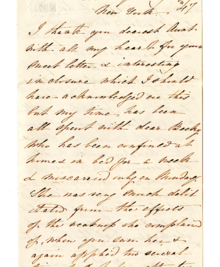 New York
I thank you dearest Aunt
with all my heart for your
most letter is interesting
inclosure which I should
have acknowledged on this
but my time has been
all spent with dear Becky
who has been confined at
times in bed for a week
& miscarried only on Sunday
She was very much debil
itated from the effects
of the weakness she complained
of, when you saw her &
again applied to several